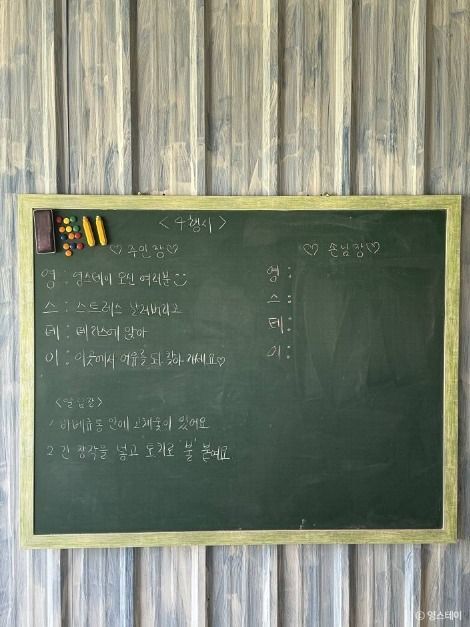 <4행시>
♡ 주인장♡
영 : 영스테이 오신 여러분
스 : 스트레스 날려버리고
테 : 테라스에 앉아
이 : 이곳에서 여유를 되찾아 가세요♡
♡ 손님장♡
영 :
스 :
테 :
이 :
<알림장>
1 바베큐통 안에 고체숯이 있어요
2 긴 장작을 넣고 토치로 '불' 붙여요
ⓒ 영스테이